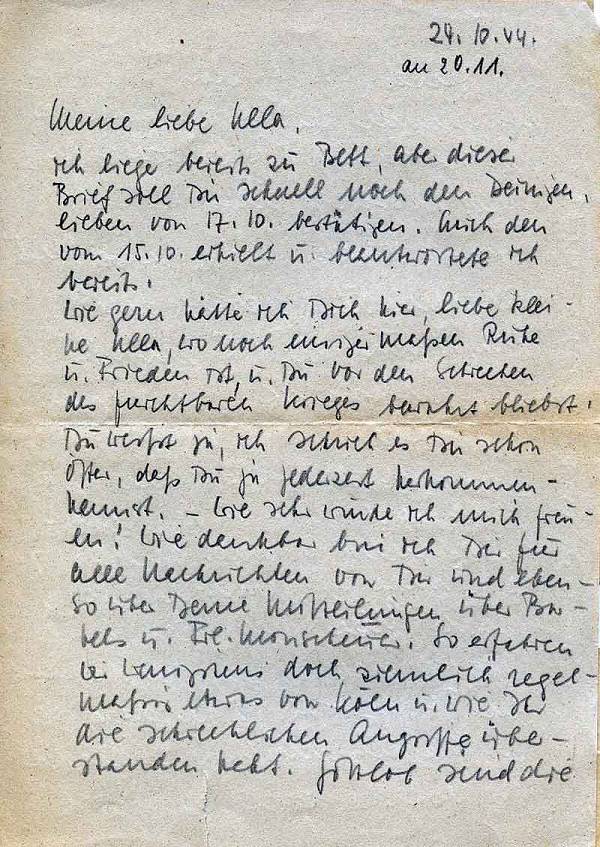 24.10.44.
an 20.11.
Meine liebe Ulla,
ich liege bereits zu Bett, aber dieser
Brief soll Dir schnell noch den Deinigen,
lieben vom 17.10. bestätigen. Auch den
vom 15.10. erhielt u. beantwortete ich
bereits.
Wie gern hätte ich Dich hier, liebe klei-
ne Ulla, wo noch einigermaßen Ruhe
u. Frieden ist, u. Du vor den Schrecken
des furchtbaren Krieges bewahrt bliebst.
Du weißt ja, ich schrieb es Dir schon
öfter, daß Du ja jederzeit herkommen
kannst. – Wie sehr würde ich mich freu-
en! Wie dankbar bin ich Dir für
alle Nachrichten von Dir und eben-
so über Deine Mitteilungen über
u. Frl. So erfahren
wir wenigstens doch ziemlich regel-
mäßig etwas von Köln u. wie Ihr
die schrecklichen Angriffe über-
standen habt. Gottlob sind die